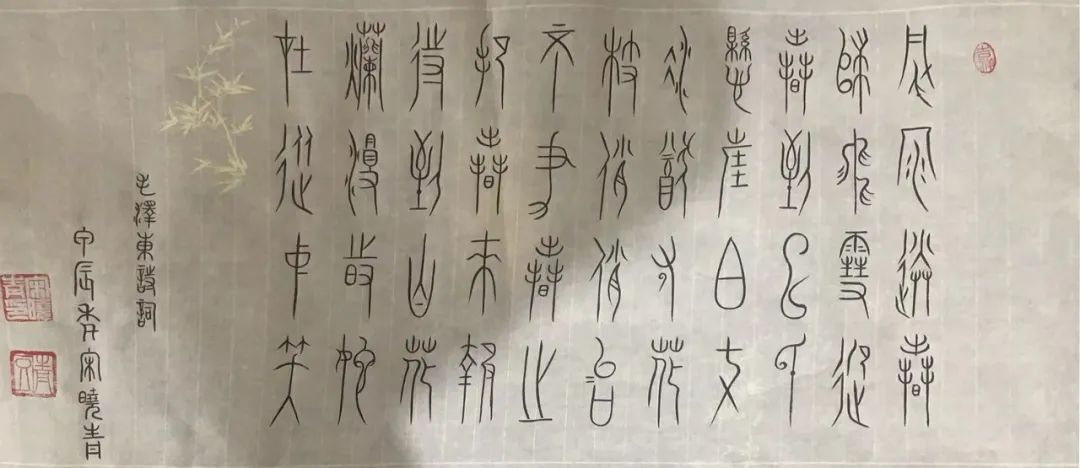 風雨送春
歸飛雪迎
春到已是
懸崖百丈
冰猶有花
枝俏俏也
不爭春只
把春來報
待到山花
爛漫時她
在叢中笑
毛澤東詩詞
甲辰年宋曉青